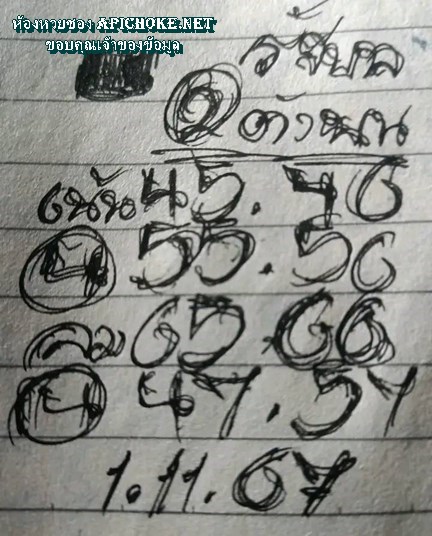 ห้องหวยซอง APICHOKE.NET
ขอบคุณเจ้าของข้อมูล
2 ตัวบน
เน้น 45. 46
4 55. 56
ลม 65 66
4 47. 57
1.11.67